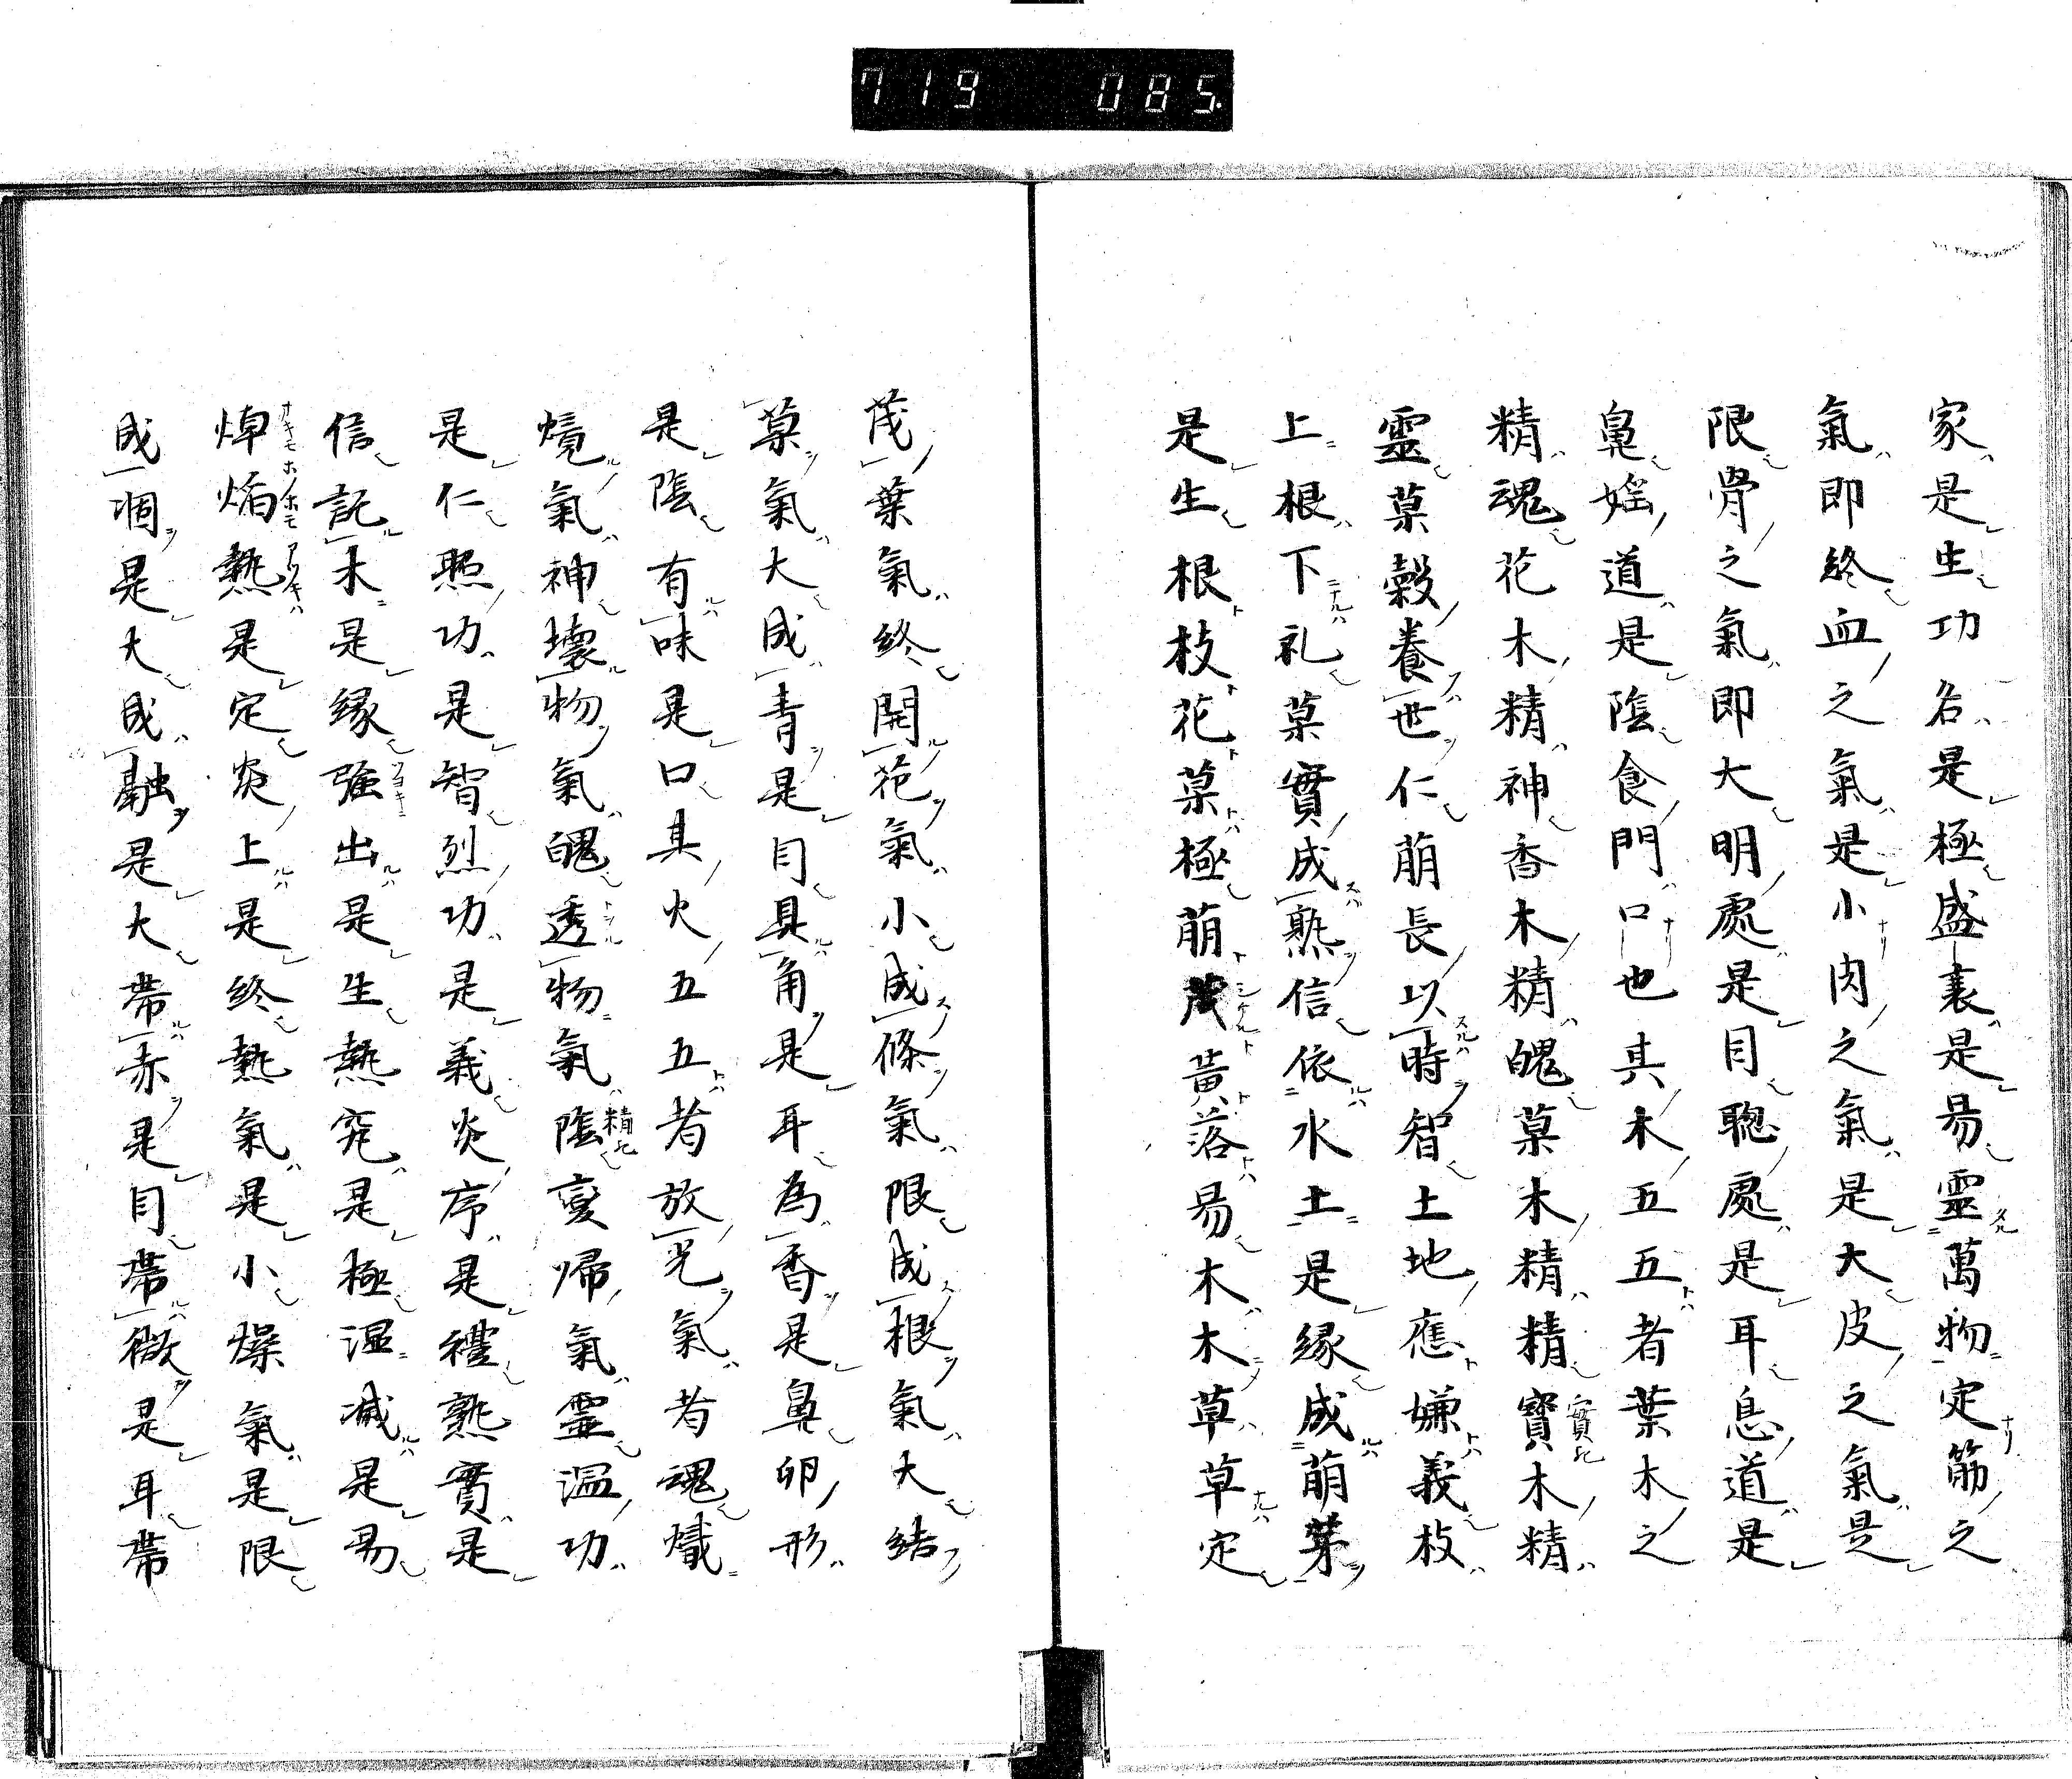 719 085.
家是生功名是極盛衰是易靈萬物定筋之
氣即終血之氣是小肉之氣是大皮之氣是
限骨之氣即大明處是目聰處是耳息道是
鼻婬道是陰食門口也其木五五者葉木之
精魂花木精神香木精魄菓木精精寶木精
靈菓穀養世仁萠長以時智土地應嫌義枝
上根下礼菓實成熟信依水土是緣成萠芽
是生根枝花菓極萠茂黃落易木木草草定
茂葉氣終開花氣小成條氣限成根氣大結
菓氣大成青是目具角是耳為香是鼻卵形
是陰有味是口其火五五者放光氣者魂熾
燒氣神壞物氣魄透物氣陰變帰氣靈温功
是仁照功是智烈功是義炎序是禮熟實是
信託木是緣強出是生熱究是極濕減是易
焯焔熱是定炎上是終熱氣是小燥氣是限
成凅是大成融是大帶赤是目帶微是耳帶